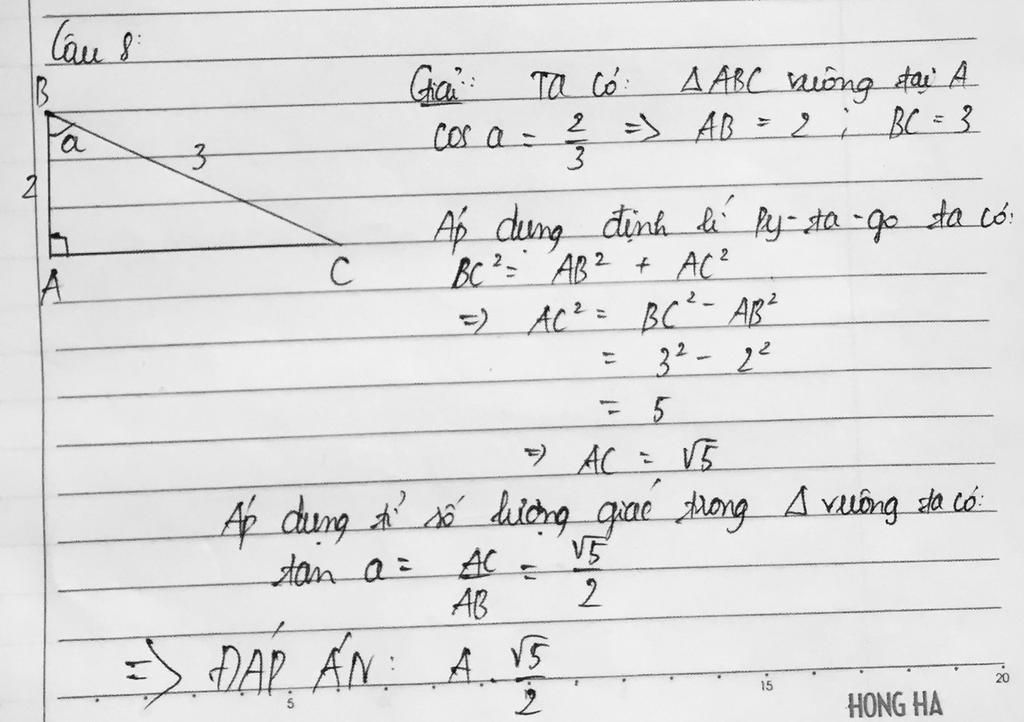 Câu 8:
B
a
3
2
A
C
Giải: Ta có: Δ ABC vuông tại A
cos a = 2/3 => AB = 2 ; BC = 3
Áp dụng định lí Py-ta-go ta có:
BC² = AB² + AC²
=> AC² = BC² - AB²
= 3² - 2²
= 5
=> AC = √5
Áp dụng tỉ số lượng giác trong Δ vuông ta có:
tan a = AC/AB = √5/2
=> ĐÁP ÁN: A. √5/2
5 15 20
HONG HA